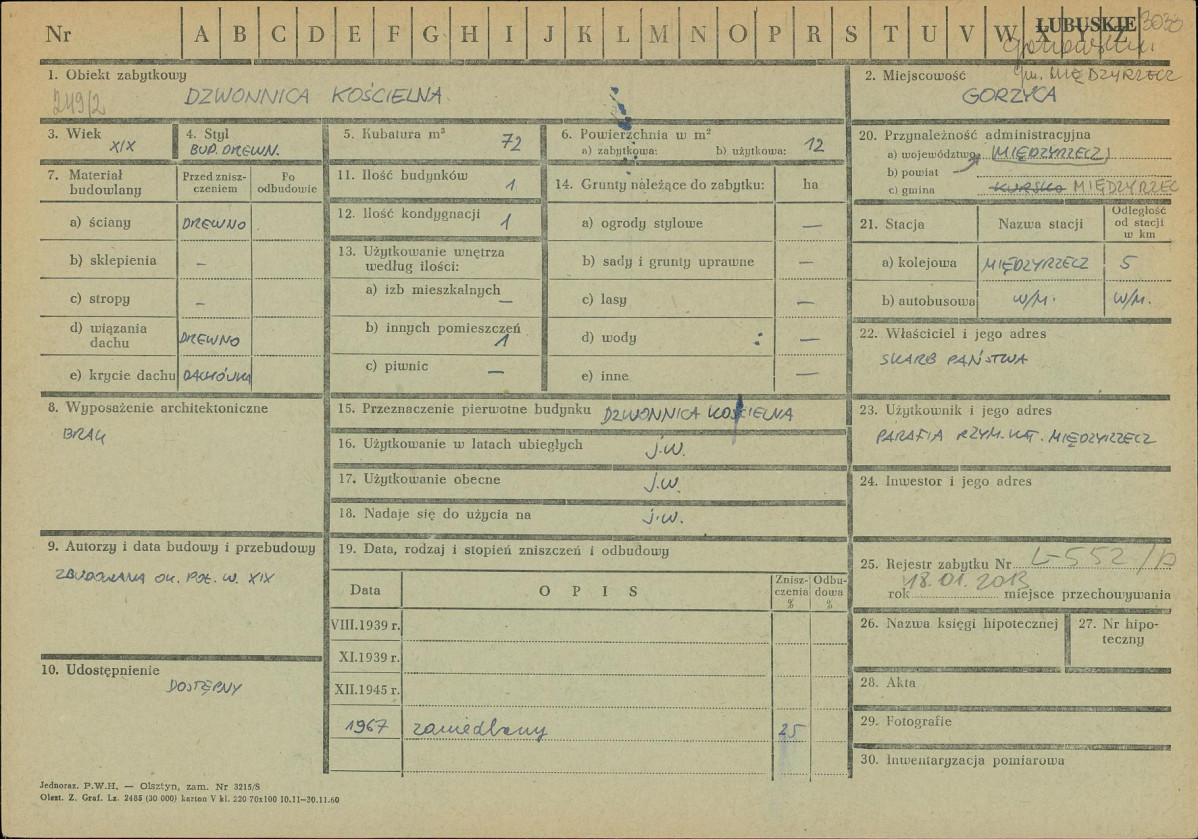 Nr A B C D E F G H I J K L M N O P R S T U V W X Y Z
LUBUSKIE 3033
gm. MIĘDZYRZECZ
1. Obiekt zabytkowy
249/2 DZWONNICA KOŚCIELNA
2. Miejscowość
GORZYCA
3. Wiek
XIX
4. Styl
BUD. DREWN.
5. Kubatura m³ 72
6. Powierzchnia w m²
a) zabytkowa: b) użytkowa: 12
7. Materiał budowlany
Przed znisz-
czeniem
Po
odbudowie
a) ściany DREWNO
b) sklepienia –
c) stropy –
d) wiązania
dachu DREWNO
e) krycie dachu DACHÓWKA
8. Wyposażenie architektoniczne
BRAK
9. Autorzy i data budowy i przebudowy
ZBUDOWANA OK. POŁ. W. XIX
10. Udostępnienie
DOSTĘPNY
11. Ilość budynków 1
12. Ilość kondygnacji 1
13. Użytkowanie wnętrza
według ilości:
a) izb mieszkalnych –
b) innych pomieszczeń 1
c) piwnic –
14. Grunty należące do zabytku: ha
a) ogrody stylowe –
b) sady i grunty uprawne –
c) lasy –
d) wody –
e) inne –
15. Przeznaczenie pierwotne budynku DZWONNICA KOŚCIELNA
16. Użytkowanie w latach ubiegłych j.w.
17. Użytkowanie obecne j.w.
18. Nadaje się do użycia na j.w.
19. Data, rodzaj i stopień zniszczeń i odbudowy
Data OPIS Znisz-
czenia
%
Odbu-
dowa
%
VIII.1939 r.
XI.1939 r.
XII.1945 r.
1967 zaniedbany 25
20. Przynależność administracyjna
a) województwo (MIĘDZYRZECZ)
b) powiat
c) gmina KURSKO MIĘDZYRZEC
21. Stacja Nazwa stacji Odległość
od stacji
w km
a) kolejowa MIĘDZYRZECZ 5
b) autobusowa W/M. W/M.
22. Właściciel i jego adres
SKARB PAŃSTWA
23. Użytkownik i jego adres
PARAFIA RZYM. KAT. MIĘDZYRZECZ
24. Inwestor i jego adres
25. Rejestr zabytku Nr L-552/A
rok 18.01.2013 miejsce przechowywania
26. Nazwa księgi hipotecznej
27. Nr hipo-
teczny
28. Akta
29. Fotografie
30. Inwentaryzacja pomiarowa
Jednoraz. P.W.H. — Olsztyn, zam. Nr 3215/S
Olszt. Z. Graf. Lz. 2485 (30 000) karton V kl. 220 70x100 10.11–30.11.60